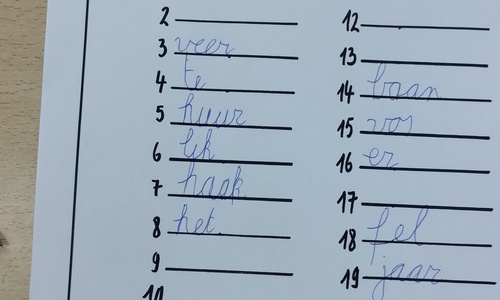 2
3 veer
4 te
5 huur
6 lik
7 haak
8 het
9
10
12
13
14 baan
15 vos
16 er
17
18 fel
19 jaar